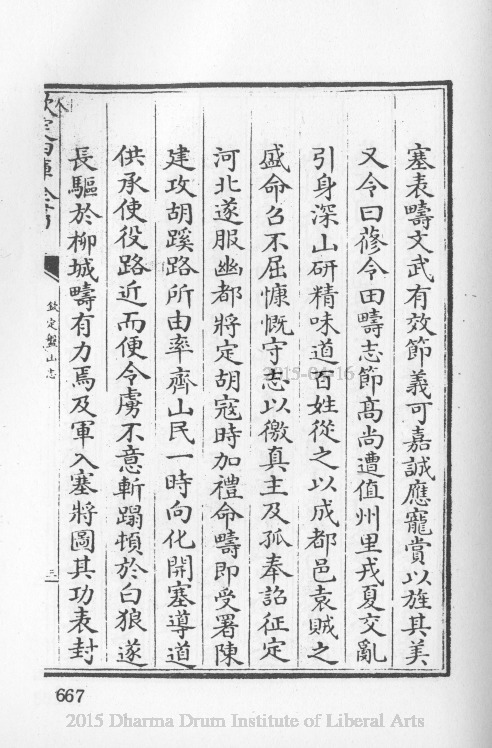 塞表疇文武有效節義可嘉誠應寵賞以旌其美
又令曰蓨令田疇志節高尚遭值州里戎夏交亂
引身深山研精味道百姓從之以成都邑袁賊之
盛命召不屈慷慨守志以徼真主及孤奉詔征定
河北遂服幽都將定胡寇時加禮命疇即受署陳
建攻胡蹊路所由率齊山民一時向化開塞導道
供承使役路近而便令虜不意斬蹋頓於白狼遂
長驅於柳城疇有力焉及軍入塞將圖其功表封
欽定四庫全書
欽定盤山志
三
2015-04-16
667
2015 Dharma Drum Institute of Liberal Arts